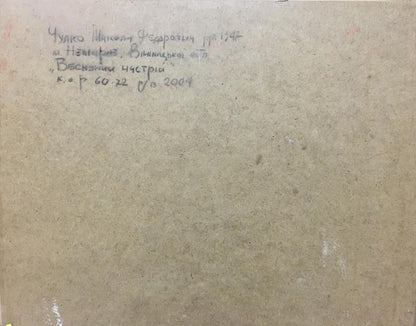 Чулко Микола Федорович р.н 1947
м. Немирів, Вінницької обл
„Весняний настрій"
к.о р 60.72 2004